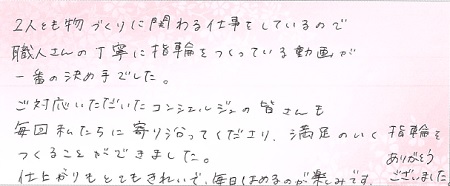 2人とも物づくりに関わる仕事をしているので
職人さんの丁寧に指輪をつくっている動画が
一番の決め手でした。
ご対応いただいたコンシェルジュの皆さんも
毎回私たちに寄り沿ってくださり、満足のいく指輪を
つくることができました。
仕上がりもとてもきれいで、毎日はめるのが楽しみです。
ありがとう
ございました